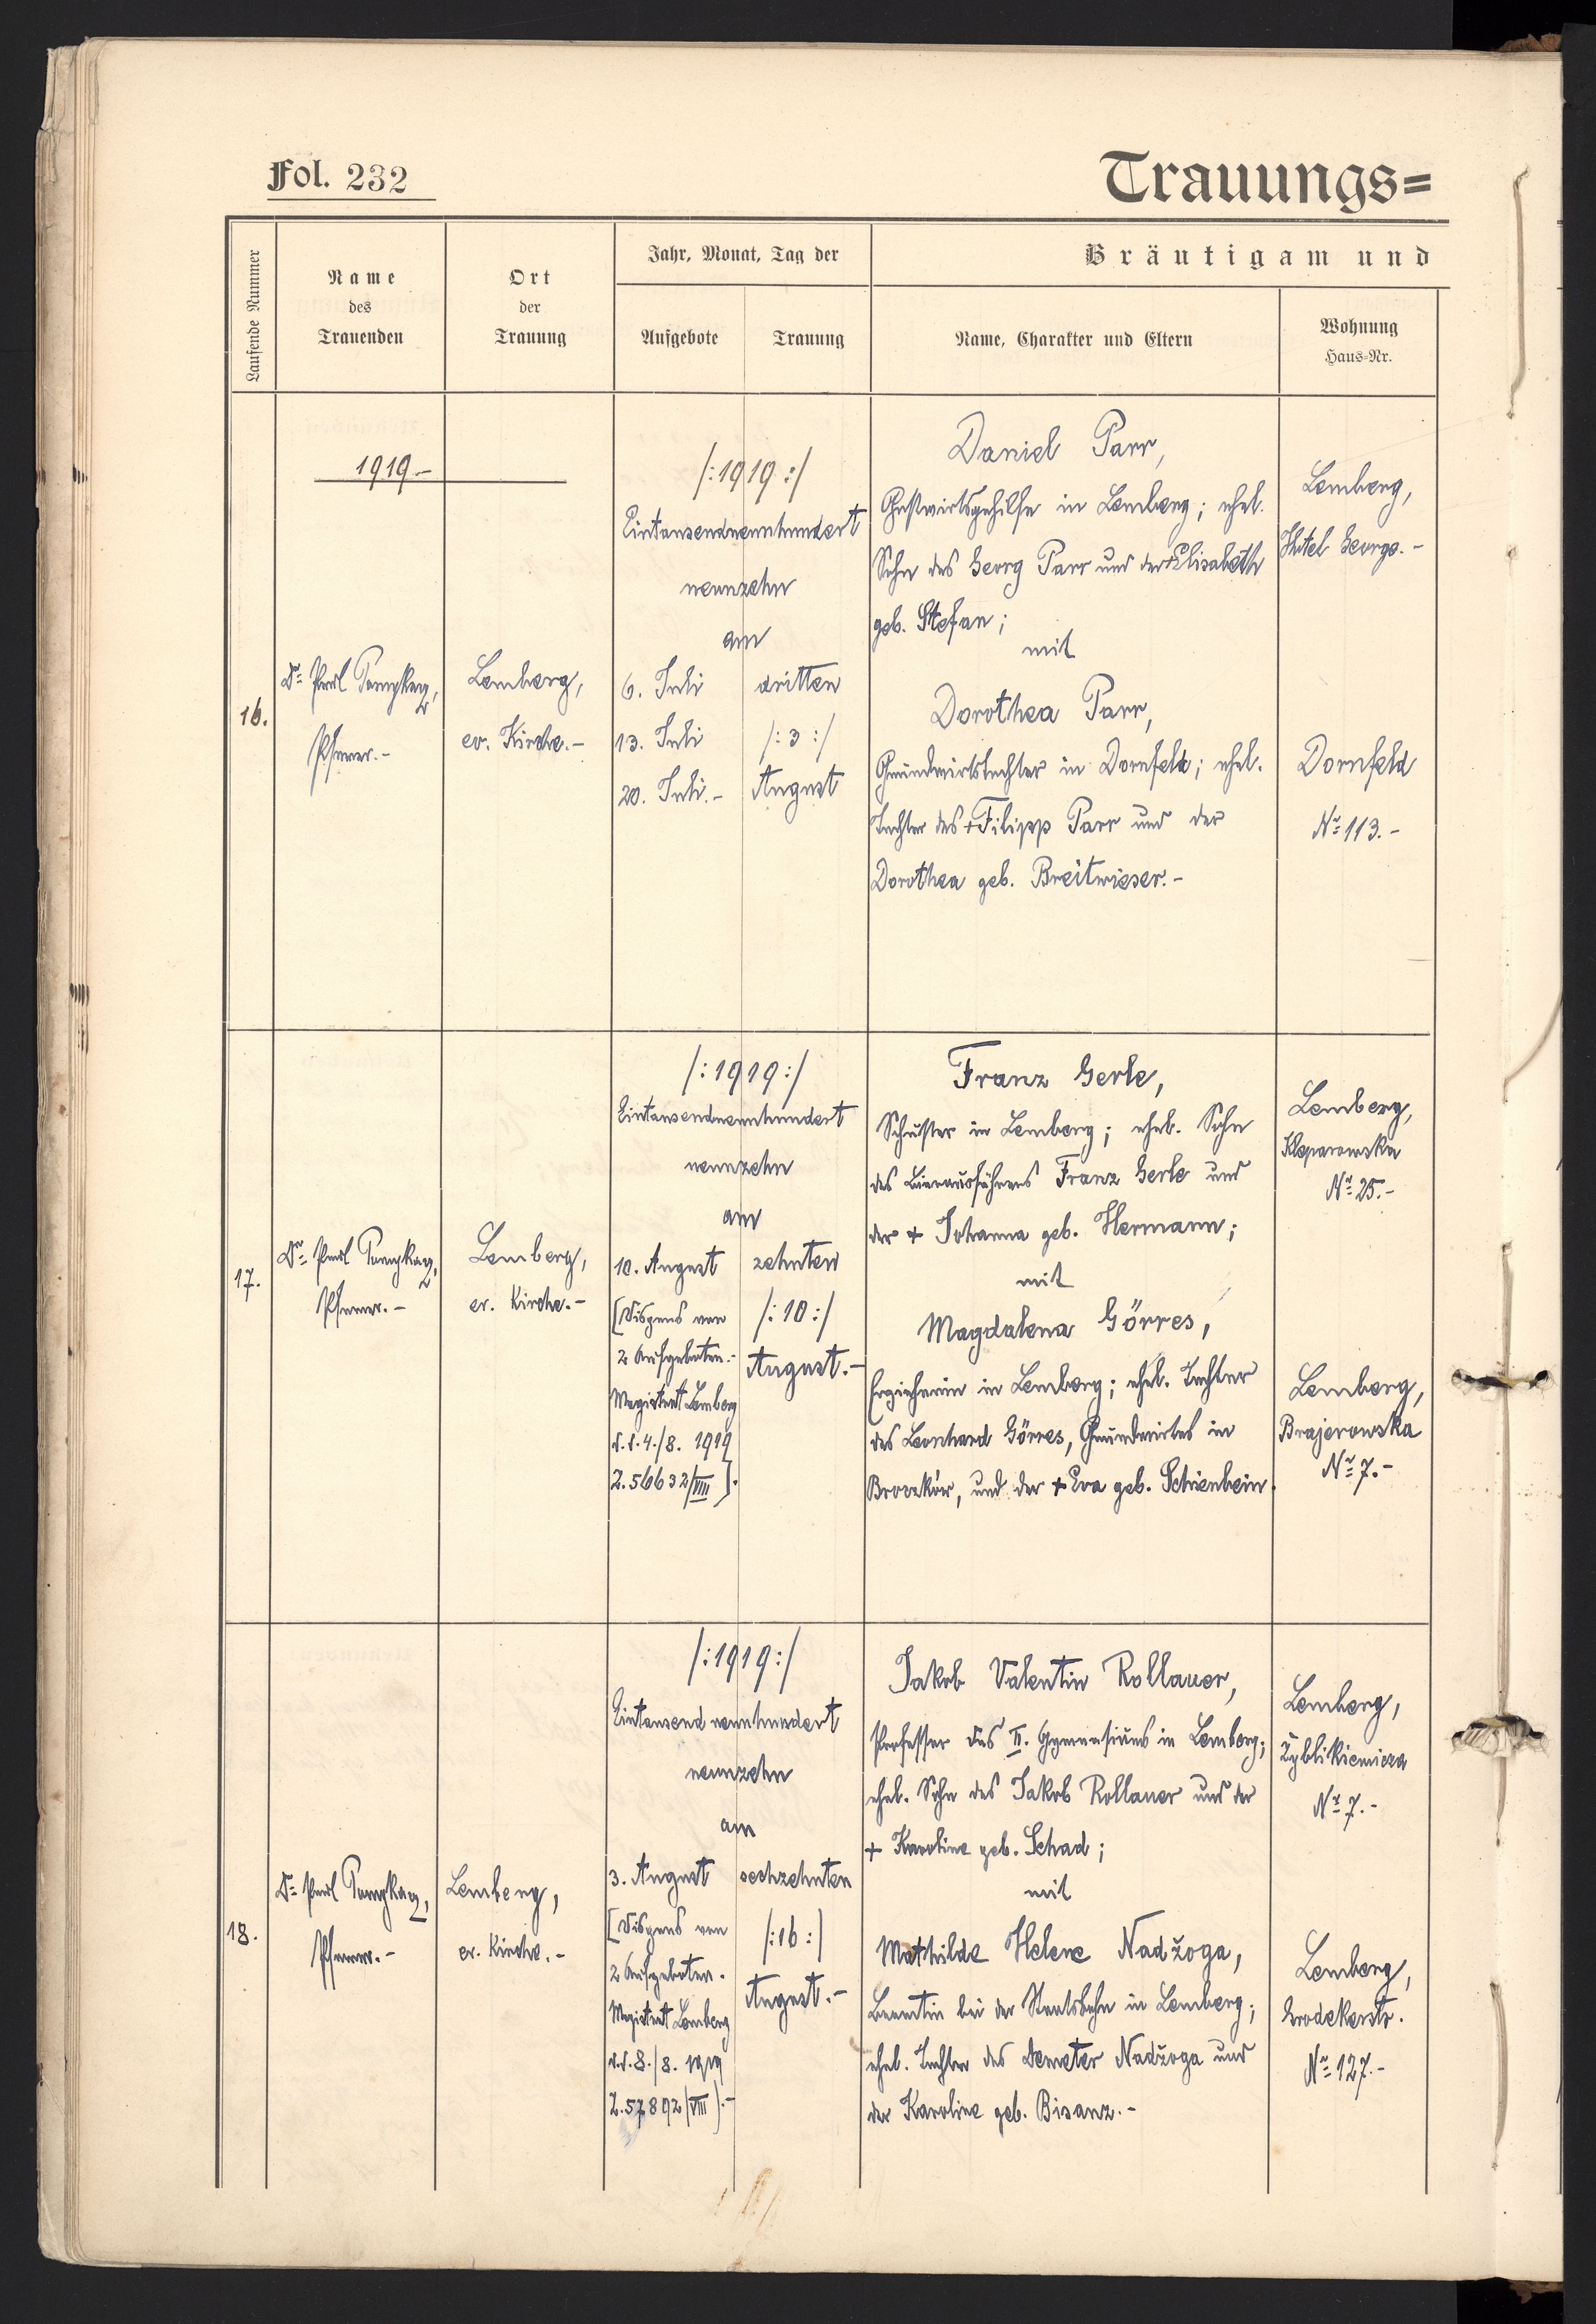 Fol. 232
Trauungs=
Laufende Nummer
Name
des
Trauenden
Ort
der
Trauung
Jahr, Monat, Tag der
Aufgebote
Trauung
Bräutigam und
Name, Charakter und Eltern
Wohnung
Haus=Nr.
1919.-
16.
Dr. Paul
Pfarrer.-
Lemberg,
ev. Kirche.-
/:1919:/
Eintausendneunhundert
neunzehn
am
6. Juli
13. Juli
20. Juli.-
dritten
/:3:/
August
Daniel Parr,
Gastwirtsgehilfe in Lemberg; ehel.
Sohn des Georg Parr und der Elisabeth
geb. Stefan;
mit
Dorothea Parr,
Grundwirtstochter in Dornfeld; ehel.
Tochter des +Filipp Parr und der
Dorothea geb. Breitwieser.-
Lemberg,
Hotel George.-
Dornfeld
Nr. 113.-
17.
Dr. Paul
Pfarrer.-
Lemberg,
ev. Kirche.-
/:1919:/
Eintausendneunhundert
neunzehn
am
10. August
[Dispens von
2 Aufgeboten.-
Magistrat Lemberg
d.d. 4./8. 1919
Z. 56632/VIII].
zehnten
/:10:/
August.-
Franz Gerle,
Schuster in Lemberg; ehel. Sohn
des Bierausführers Franz Gerle und
der + Johanna geb. Hermann;
mit
Magdalena Görres,
Erzieherin in Lemberg; ehel. Tochter
des Leonhard Görres, Grundwirtes in
und der + Eva geb. Schienbein.
Lemberg,
Kleparowska
Nr. 25.-
Lemberg,
Brajerowska
Nr. 7.-
18.
Dr. Paul
Pfarrer.-
Lemberg,
ev. Kirche.-
/:1919:/
Eintausendneunhundert
neunzehn
am
3. August
[Dispens von
2 Aufgeboten.
Magistrat Lemberg
d.d. 8./8. 1919
Z. 57892/VIII].-
sechzehnten
/:16:/
August.-
Jakob Valentin Rollauer,
Professor des II. Gymnasiums in Lemberg;
ehel. Sohn des Jakob Rollauer und der
+ Karoline geb. Schad;
mit
Mathilde Helene Nadžoga,
Beamtin bei der Staatsbahn in Lemberg;
ehel. Tochter des Demeter Nadžoga und
der Karoline geb. Bisanz.-
Lemberg,
Zyblikiewicza
Nr. 7.-
Lemberg,
Grodekerstr.
Nr. 127.-